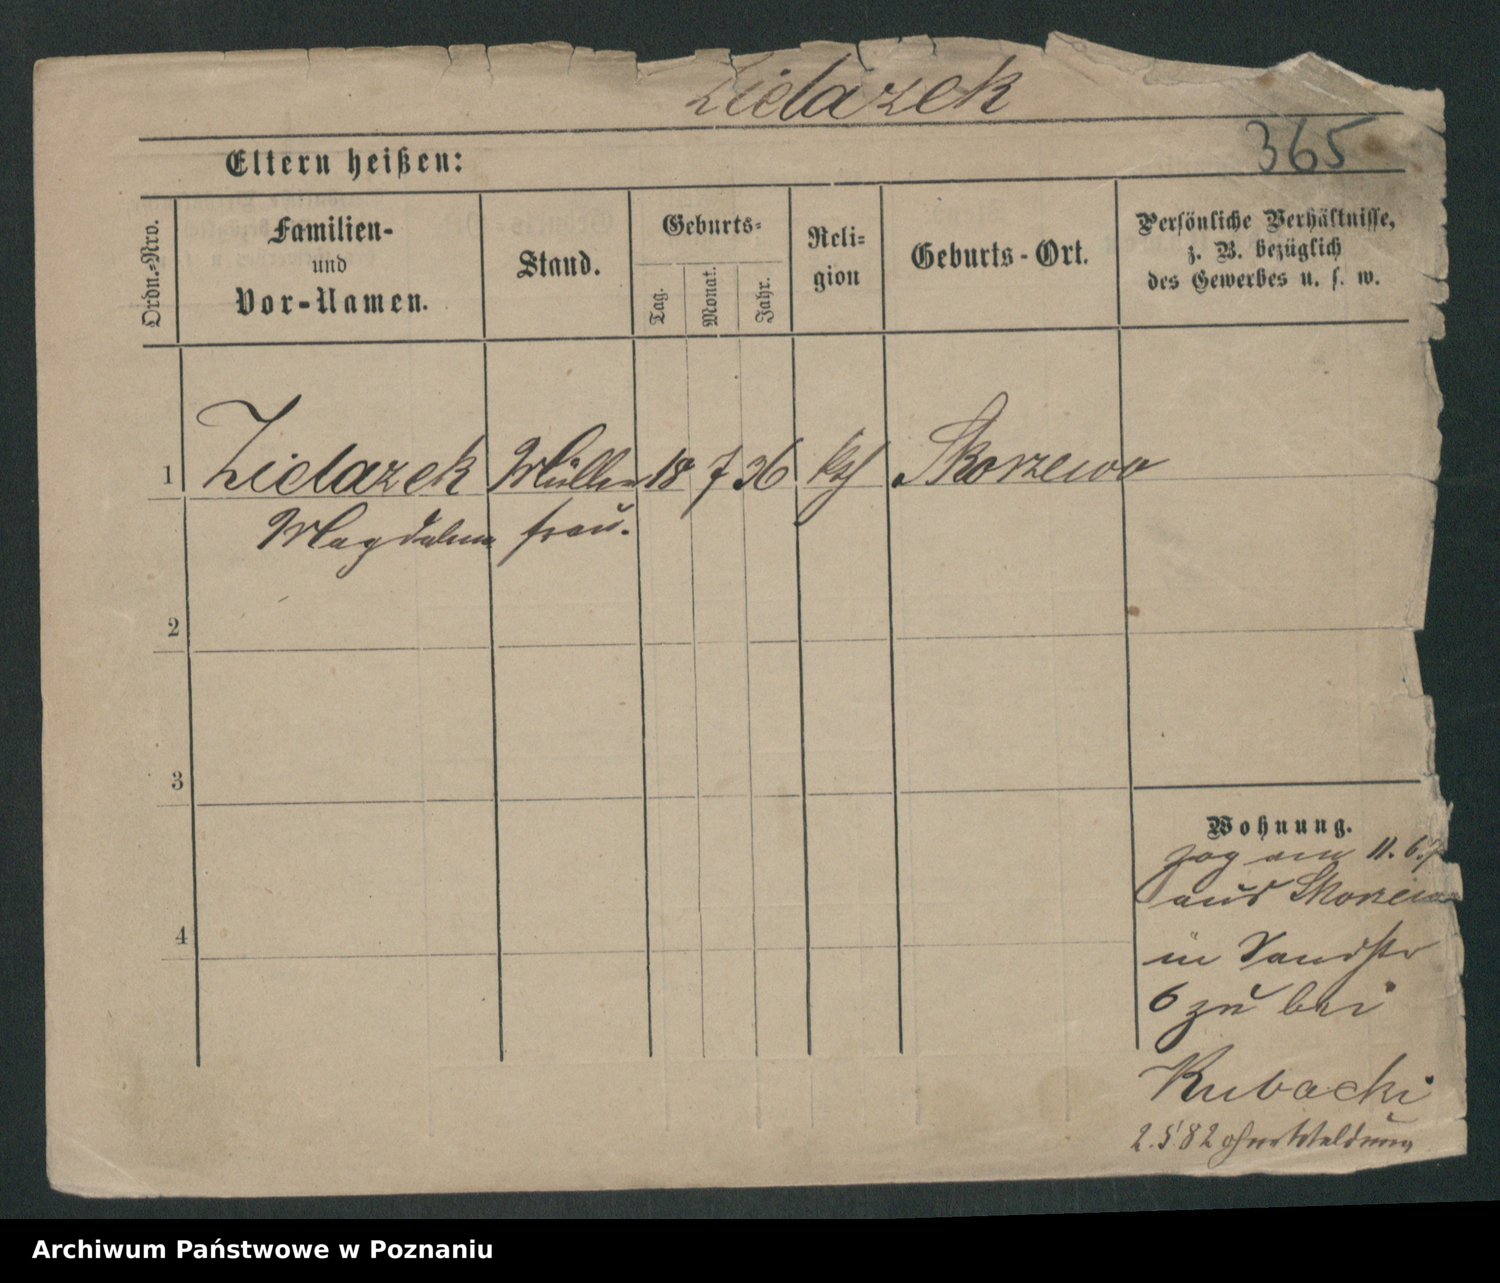 Zielazek
365
Eltern heißen:
Ordn.-Nro.
Familien-
und
Vor-Namen.
Stand.
Geburts-
Tag.
Monat.
Jahr.
Reli-
gion
Geburts-Ort.
Persönliche Verhältnisse,
z. B. bezüglich
des Gewerbes u. s. w.
1 Zielazek Müller 18 7 36 kth Skorzewo
Magdalena frau.
2
3
Wohnung.
zog am 11. 6.
aus Skorzewo
in Sandstr
6 zu bei
4
Kubacki
2. 5 82 ohne Meldung
Archiwum Państwowe w Poznaniu